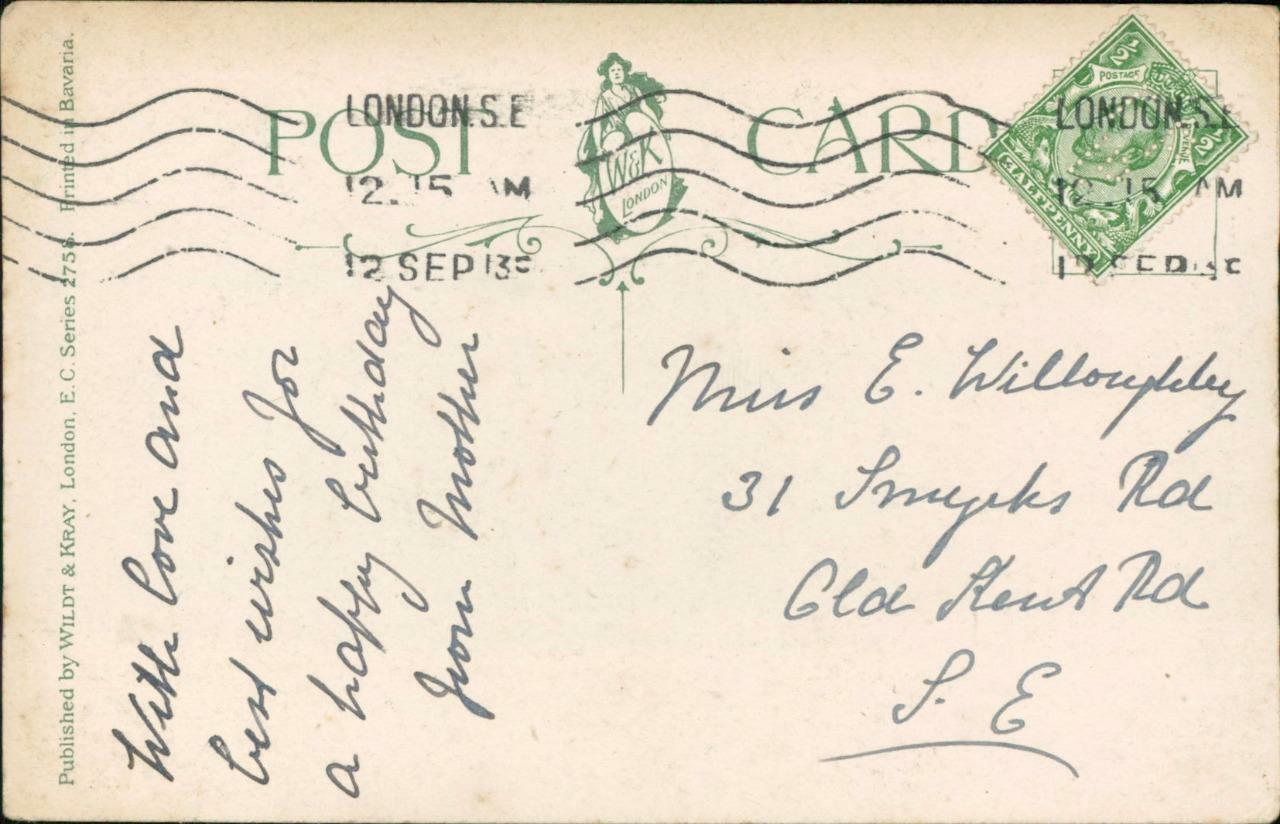 POST CARD
W&K
LONDON
LONDON. S.E
12. 15 AM
12 SEP 13
LONDON. S.E
12. 15 AM
12 SEP
½
POSTAGE
REVENUE
½
HALFPENNY
Published by WILDT & KRAY, London, E. C. Series 2756. Printed in Bavaria.
With love and
best wishes for
a happy birthday
from Mother
Miss E. Willoughby
31 Rd
Old Kent Rd
S. E